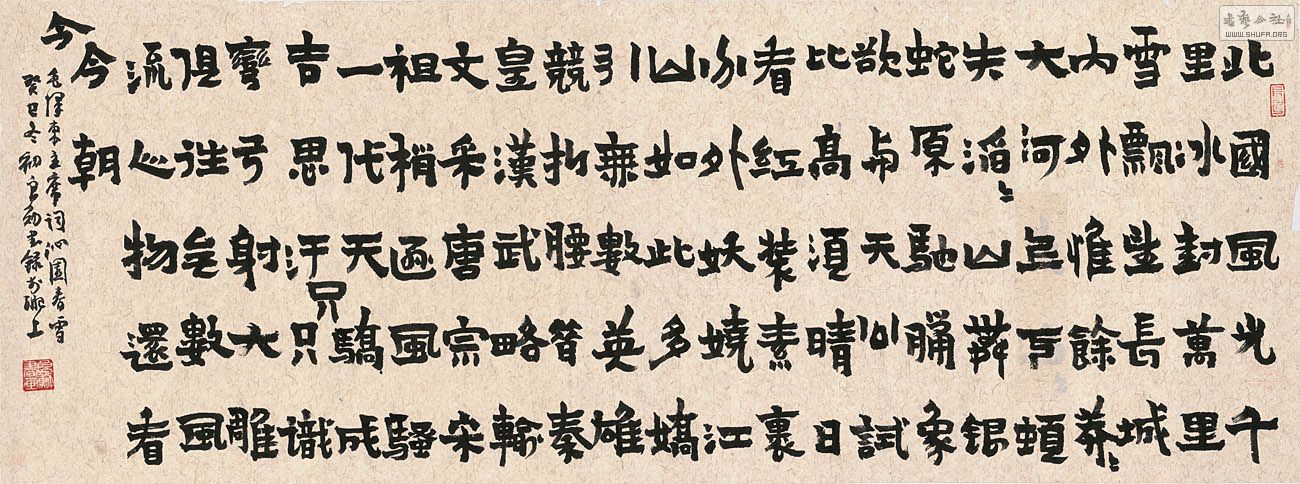 北國風光千
里冰封萬里
雪飄望長城
内外惟餘莽〻
大河上下頓
失滔〻山舞銀
蛇原馳臘象
欲与天公試
比高須晴日
看紅裝素裹
分外妖嬈江
山如此多嬌
引無數英雄
競折腰秦
皇漢武略輸
文采唐宗宋
祖稍遜風騷
一代天驕成
吉思汗只只識
彎弓射大雕
俱往矣數風
流人物還看
今朝
今
毛澤東主席詞沁園春雪
癸巳冬初書錄於上
書藝公社
WWW.SHUFA.ORG